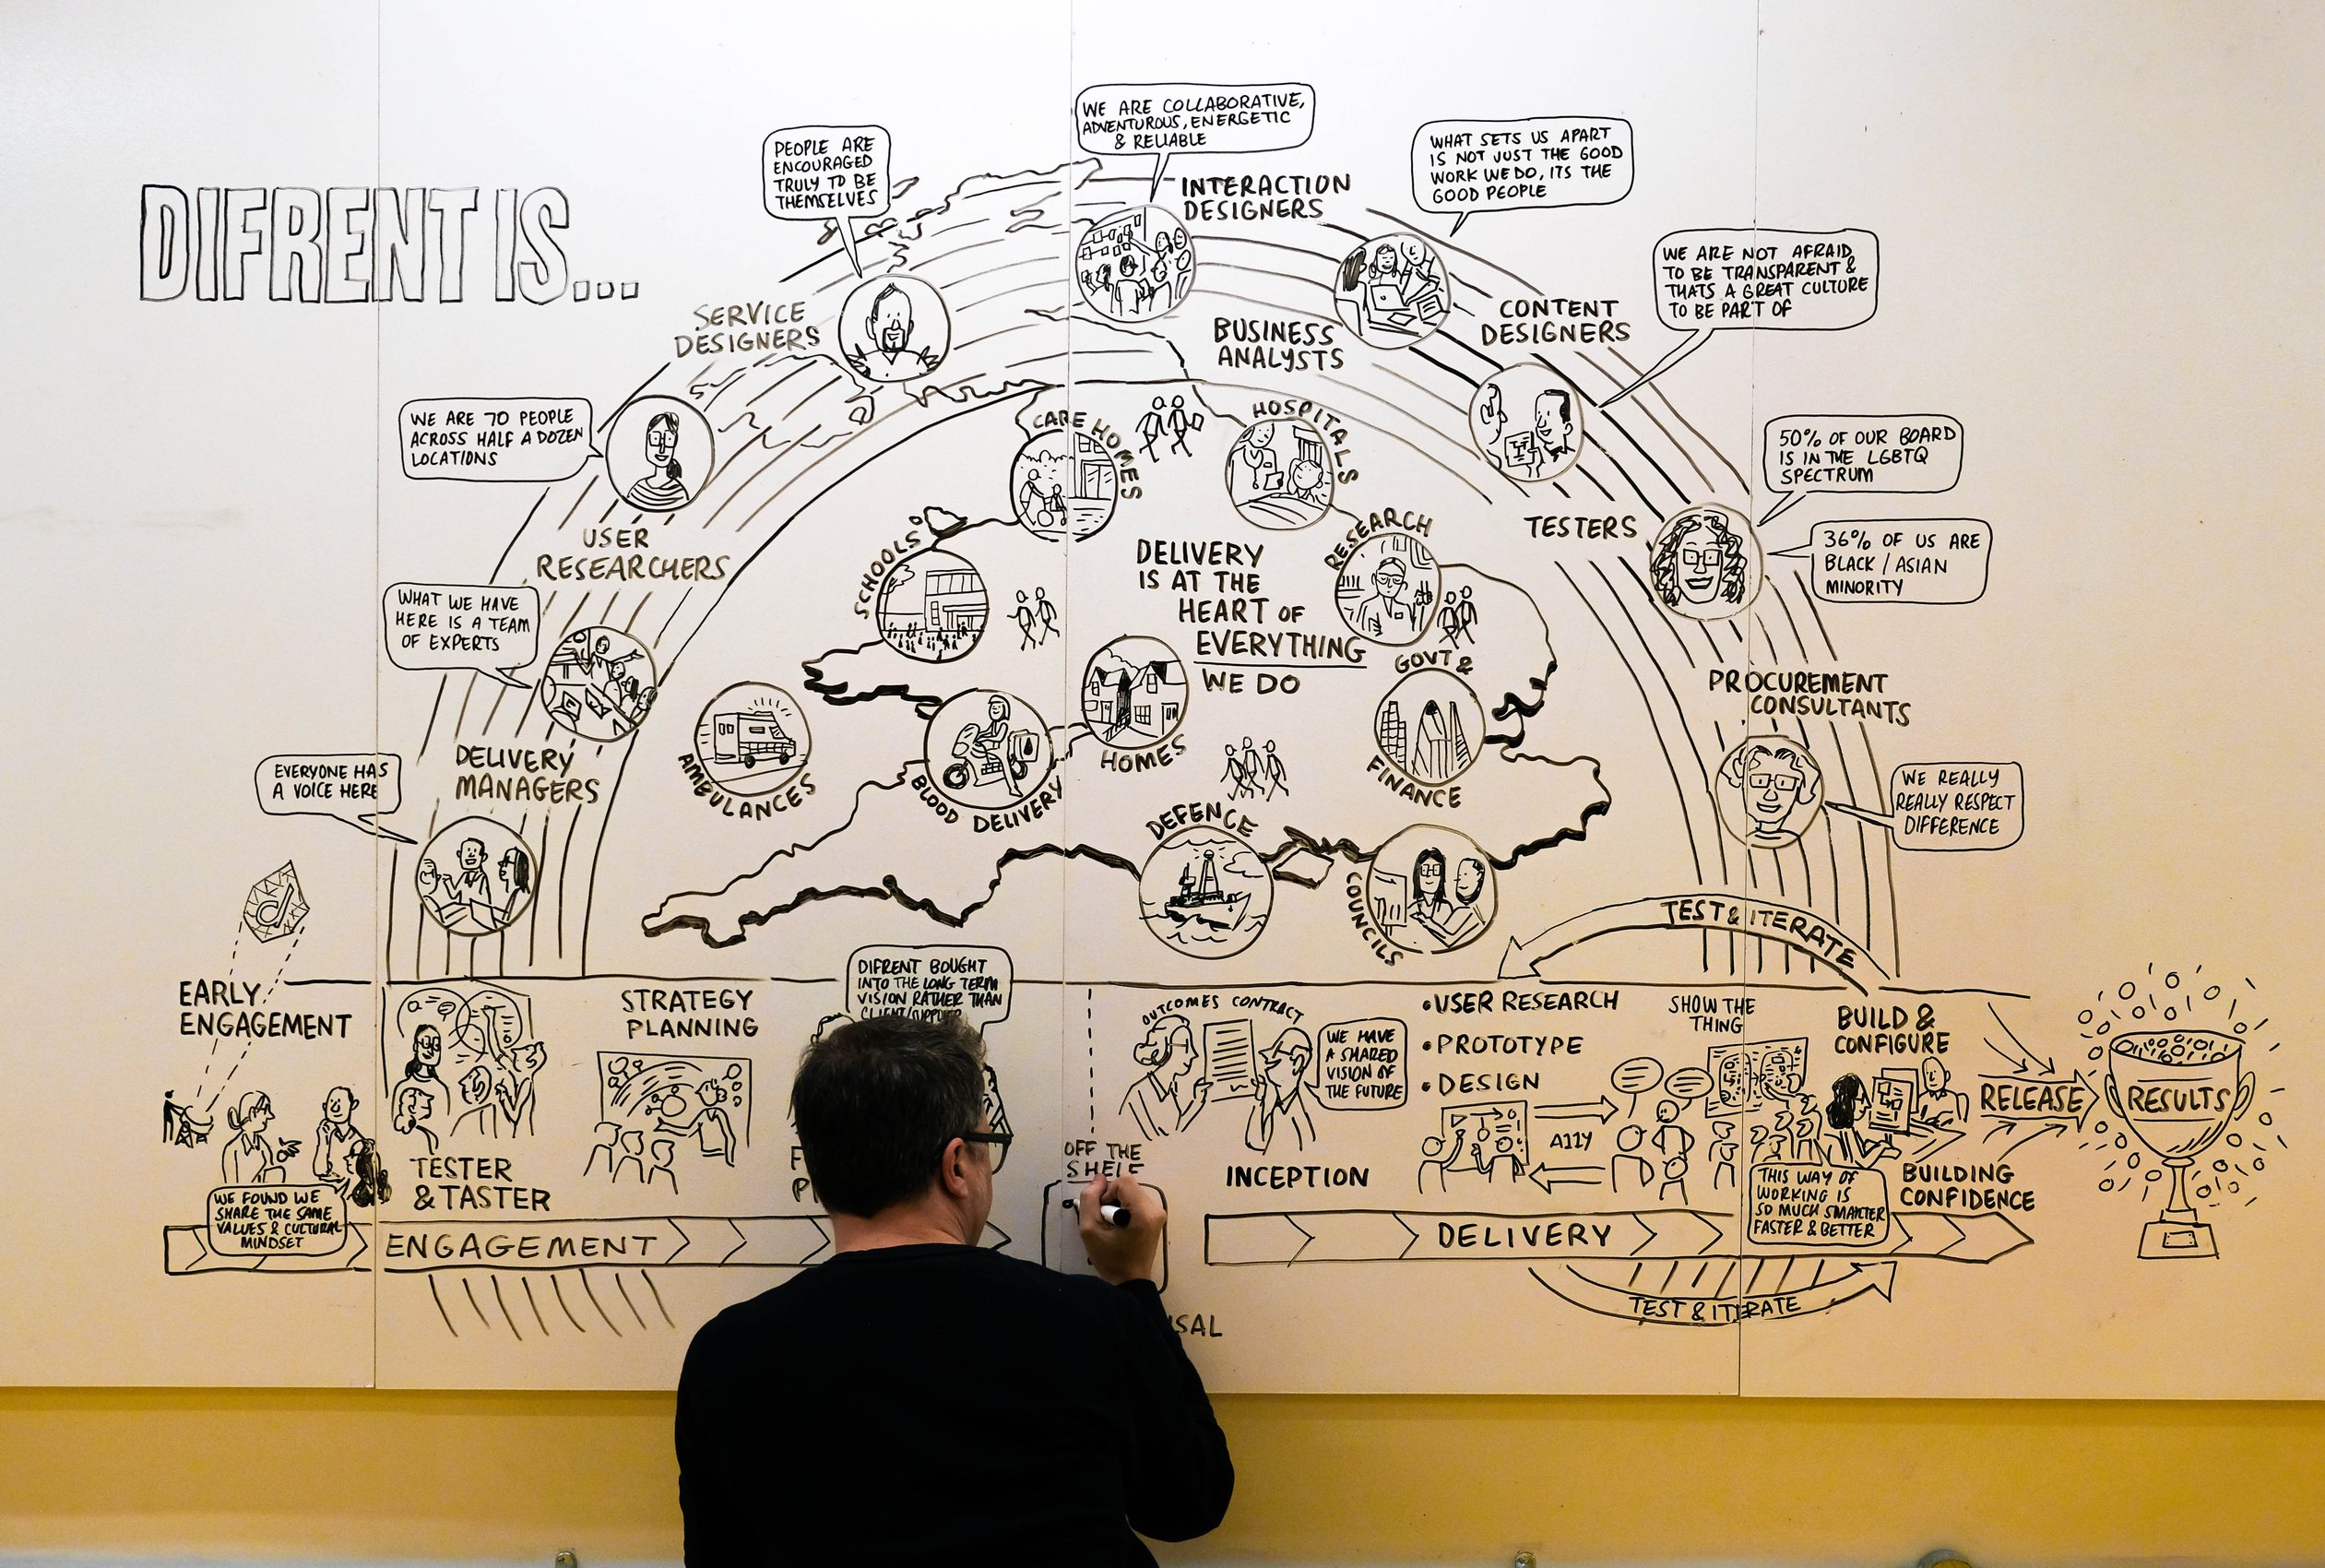 DIFRENT IS...
PEOPLE ARE
ENCOURAGED
TRULY TO BE
THEMSELVES
WE ARE COLLABORATIVE,
ADVENTUROUS, ENERGETIC
& RELIABLE
WHAT SETS US APART
IS NOT JUST THE GOOD
WORK WE DO, ITS THE
GOOD PEOPLE
WE ARE NOT AFRAID
TO BE TRANSPARENT &
THATS A GREAT CULTURE
TO BE PART OF
INTERACTION
DESIGNERS
SERVICE
DESIGNERS
BUSINESS
ANALYSTS
CONTENT
DESIGNERS
WE ARE 70 PEOPLE
ACROSS HALF A DOZEN
LOCATIONS
50% OF OUR BOARD
IS IN THE LGBTQ
SPECTRUM
36% OF US ARE
BLACK / ASIAN
MINORITY
USER
RESEARCHERS
TESTERS
WHAT WE HAVE
HERE IS A TEAM
OF EXPERTS
PROCUREMENT
CONSULTANTS
DELIVERY
MANAGERS
EVERYONE HAS
A VOICE HERE
WE REALLY
REALLY RESPECT
DIFFERENCE
CARE HOMES
HOSPITALS
SCHOOLS
RESEARCH
DELIVERY
IS AT THE
HEART OF
EVERYTHING
WE DO
GOVT &
FINANCE
AMBULANCES
BLOOD DELIVERY
HOMES
DEFENCE
COUNCILS
TEST & ITERATE
d
EARLY
ENGAGEMENT
WE FOUND WE
SHARE THE SAME
VALUES & CULTURAL
MINDSET
TESTER
& TASTER
STRATEGY
PLANNING
DIFRENT BOUGHT
INTO THE LONG TERM
VISION RATHER THAN
ENGAGEMENT
OFF THE
SHELF
OUTCOMES CONTRACT
WE HAVE
A SHARED
VISION OF
THE FUTURE
INCEPTION
• USER RESEARCH
• PROTOTYPE
• DESIGN
A11Y
SHOW THE
THING
BUILD &
CONFIGURE
THIS WAY OF
WORKING IS
SO MUCH SMARTER
FASTER & BETTER
BUILDING
CONFIDENCE
RELEASE
RESULTS
DELIVERY
TEST & ITERATE